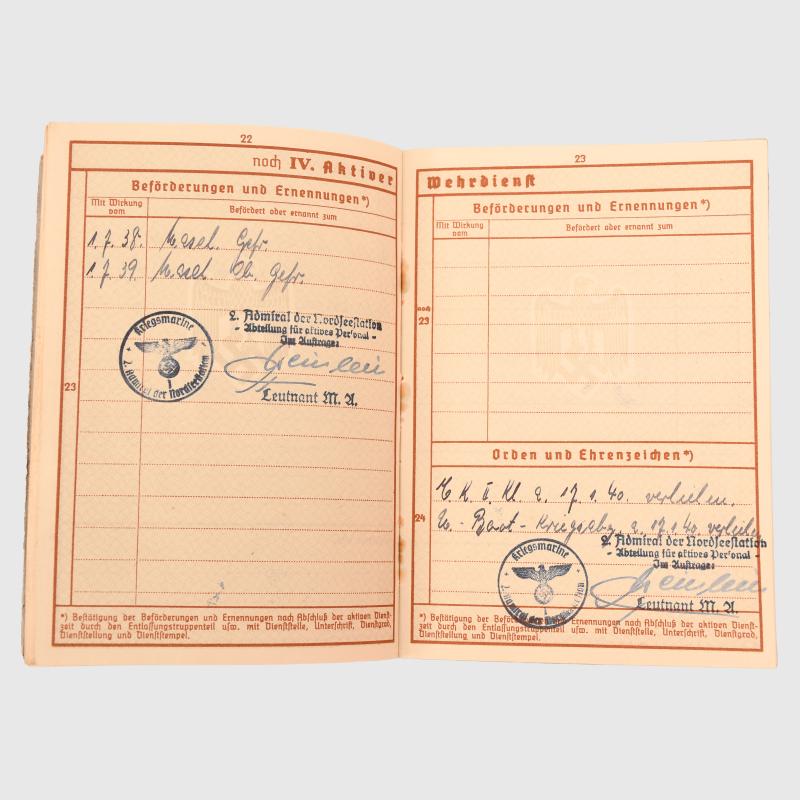 22
noch IV. Aktiver
Beförderungen und Ernennungen*)
Mit Wirkung vom
Befördert oder ernannt zum
1.7.38. Masch. Gefr.
1.7.39. Masch. Ob. Gefr.
2. Admiral der Nordseestation
- Abteilung für aktives Personal -
Im Auftrage:
Leutnant M. A.
Kriegsmarine
2. Admiral der Nordseestation
23
*) Bestätigung der Beförderungen und Ernennungen nach Abschluß der aktiven Dienst-
zeit durch den Entlassungstruppenteil usw. mit Dienststelle, Unterschrift, Dienstgrad,
Dienststellung und Dienststempel.
23
Wehrdienst
Beförderungen und Ernennungen*)
Mit Wirkung vom
Befördert oder ernannt zum
noch
23
Orden und Ehrenzeichen*)
E. K. II. Kl. a. 17.1.40. verliehen.
24
U.-Boot-Kriegsabz. a. 17.1.40 verliehen
2. Admiral der Nordseestation
- Abteilung für aktives Personal -
Im Auftrage:
Leutnant M. A.
Kriegsmarine
2. Admiral der Nordseestation
*) Bestätigung der Beförderungen und Ernennungen nach Abschluß der aktiven Dienst-
zeit durch den Entlassungstruppenteil usw. mit Dienststelle, Unterschrift, Dienstgrad,
Dienststellung und Dienststempel.